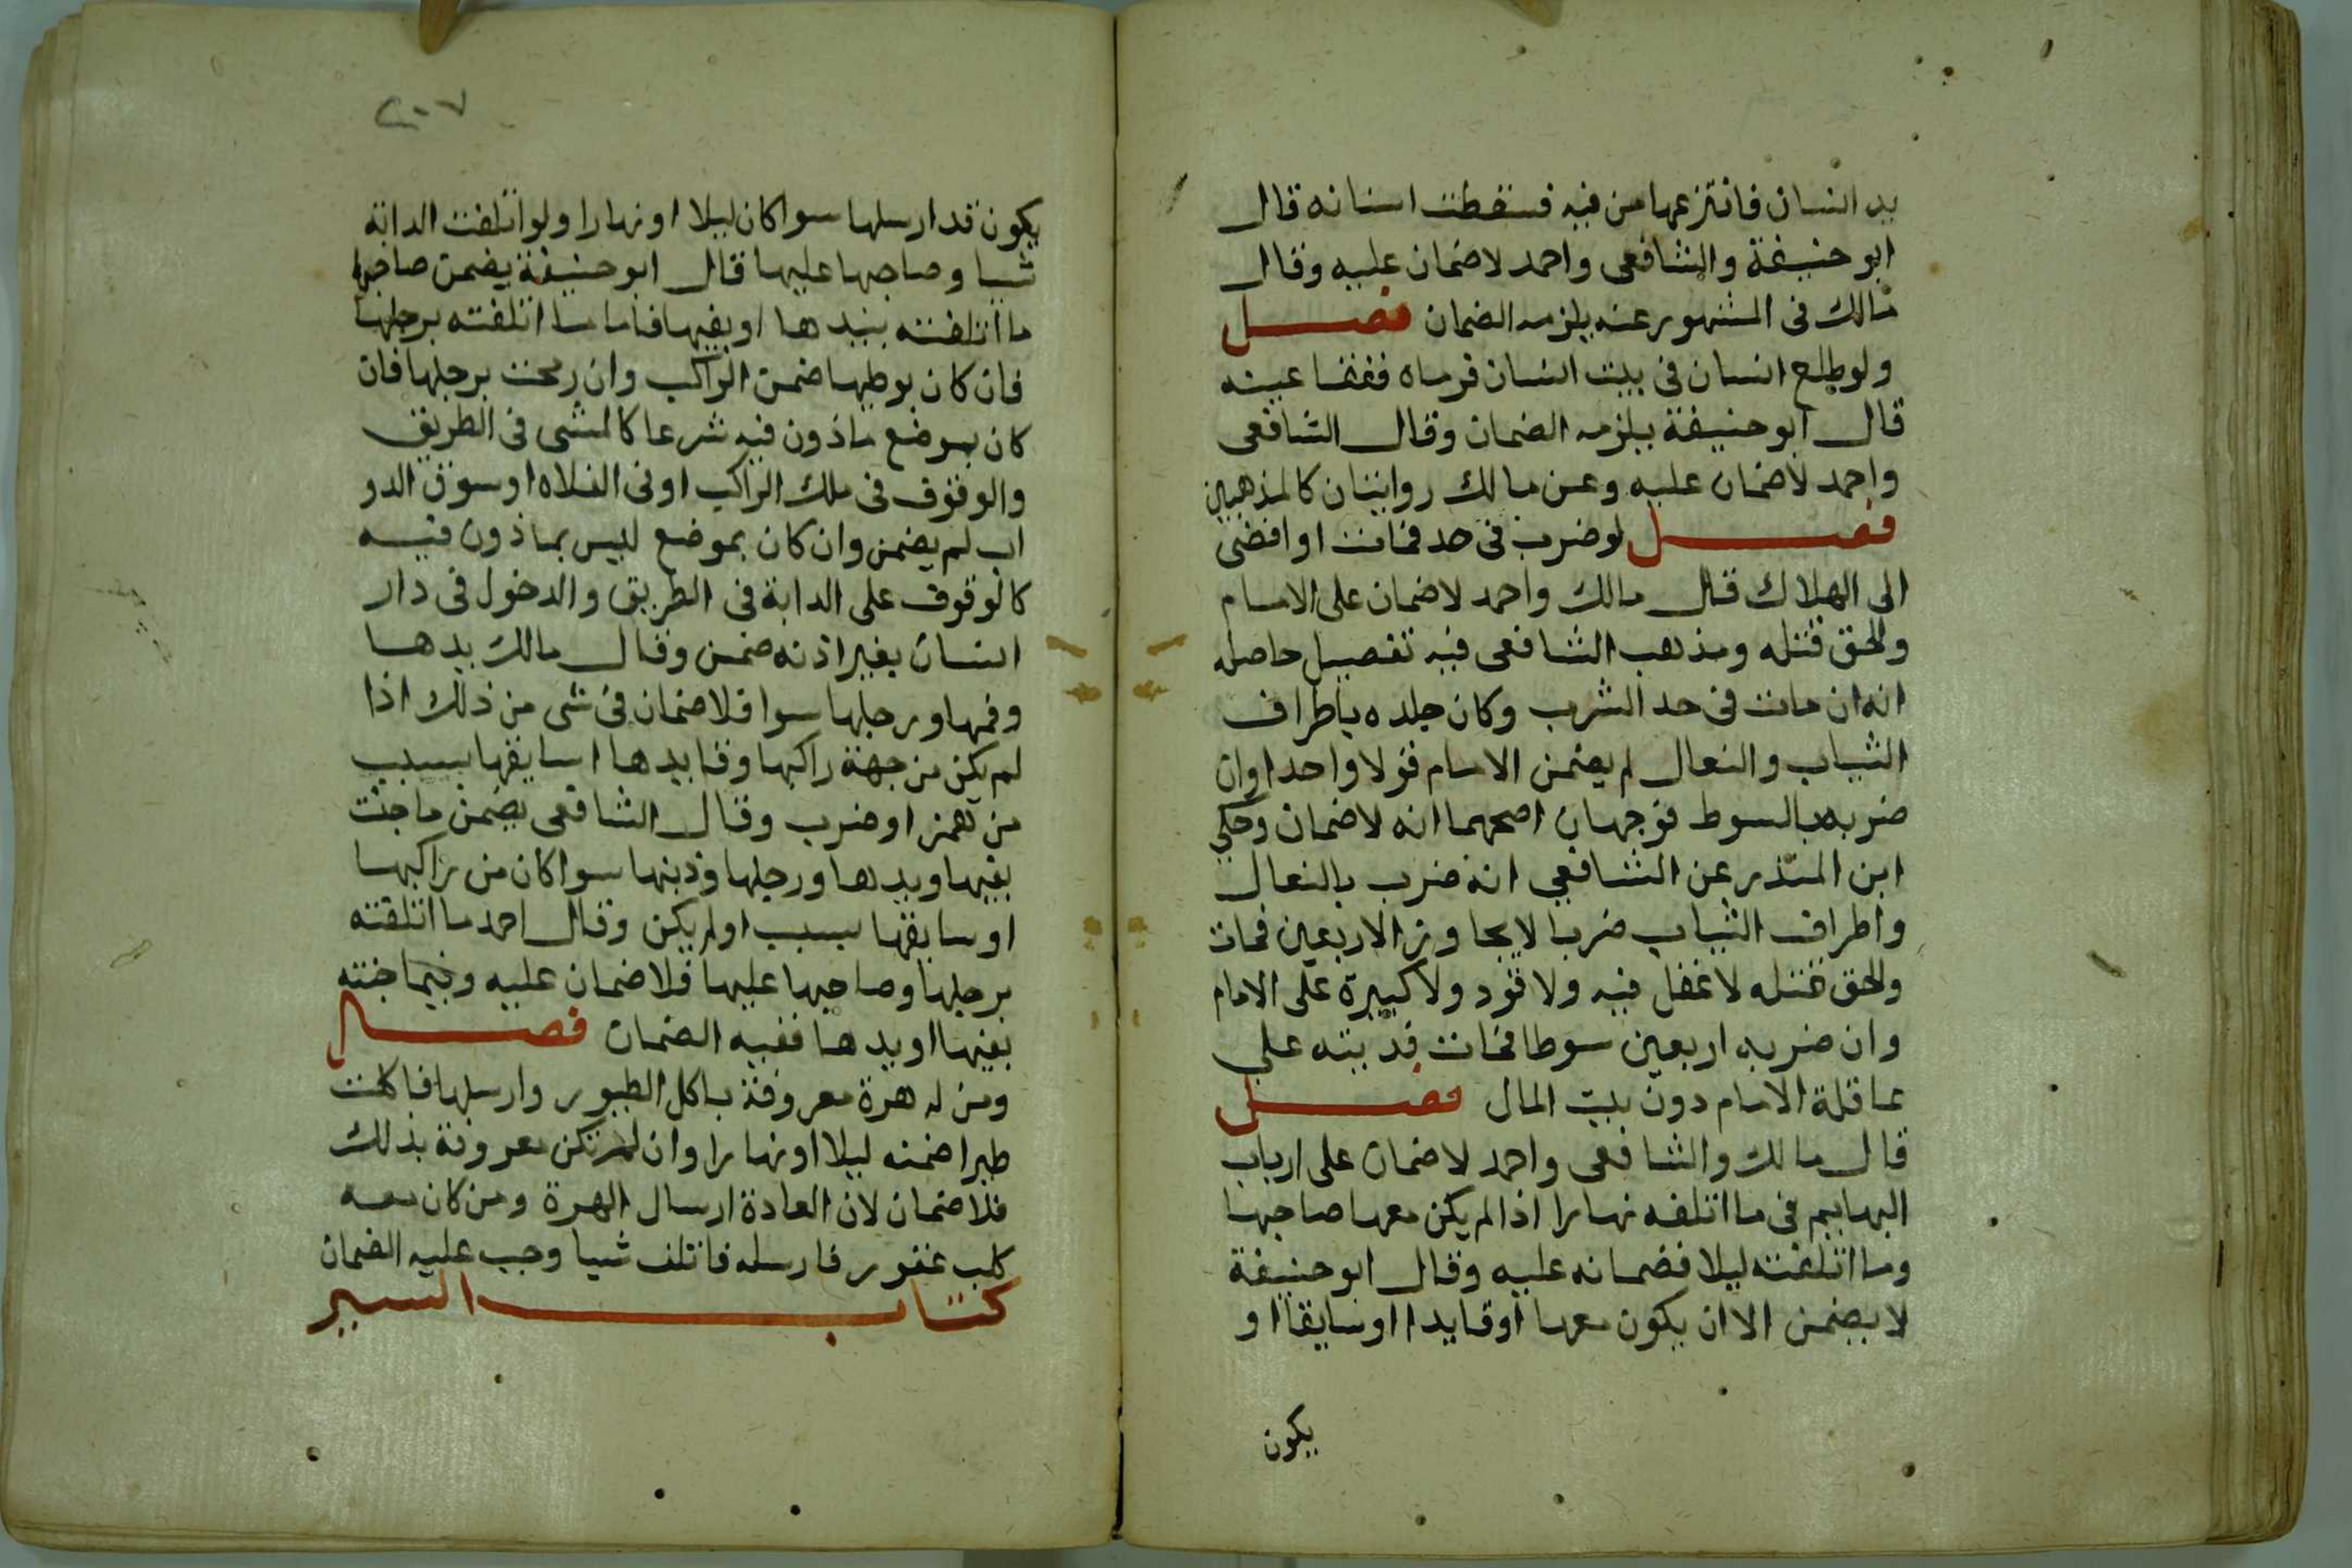 يد انسان فانتزعها من فيه فسقطت اسنانه قال
ابو حنيفة والشافعى واحمد لا ضمان عليه وقال
مالك فى المشهور عنه يلزمه الضمان فصل
ولو طلع انسان فى بيت انسان فرماه ففقا عينه
قال ابو حنيفة يلزمه الضمان وقال الشافعى
واحمد لا ضمان عليه وعن مالك روايتان كالمذهبين
فصل لو ضرب فى حد فمات او افضى
الى الهلاك قال مالك واحمد لا ضمان على الامام
والحق قتله ومذهب الشافعى فيه تفصيل حاصله
انه ان مات فى حد الشرب وكان جلده باطراف
الثياب والنعال لم يضمن الامام قولا واحدا وان
ضربه بالسوط فوجهان اصحهما انه لا ضمان وحكي
ابن المنذر عن الشافعي انه ضرب بالنعال
واطراف الثياب ضربا لا يجاوز الاربعين فمات
والحق قتله لا عقل فيه ولا قود ولا كبيرة على الامام
وان ضربه اربعين سوطا فمات فديته على
عاقلة الامام دون بيت المال فصل
قال مالك والشافعى واحمد لا ضمان على ارباب
البهايم فى ما اتلفه نهارا اذا لم يكن معها صاحبها
وما اتلفته ليلا فضمانه عليه وقال ابو حنيفة
لا يضمن الا ان يكون معها اوقايدا اوسايقا او
يكون
٢٠٧
يكون قد ارسلها سوا كان ليلا او نهارا ولو اتلفت الدابة
شيا وصاحبها عليها قال ابو حنيفة يضمن صاحبها
ما اتلفته بيدها او بفيها فاما ما اتلفته برجلها
فان كان بوطيها ضمن الراكب وان رمحت برجلها فان
كان بموضع ماذون فيه شرعا كالمشى فى الطريق
والوقوف فى ملك الراكب اوفى الفلاه او سوق الدو
اب لم يضمن وان كان بموضع ليس بماذون فيه
كالوقوف على الدابة فى الطريق والدخول فى دار
انسان بغير اذنه ضمن وقال مالك يدها
وفمها ورجلها سوا فلا ضمان فى شى من ذلك اذا
لم يكن من جهة راكبها وقايدها اسايقها بسبب
من همز او ضرب وقال الشافعى يضمن ما جنت
بفيها ويدها ورجلها وذبنها سوا كان من راكبها
او سايقها بسبب اولم يكن وقال احمد ما اتلفته
برجلها وصاحبها عليها فلا ضمان عليه وفيما جنته
بفيها او يدها ففيه الضمان فصل
ومن له هرة معروفة باكل الطيور وارسلها فاكلت
طيرا ضمنه ليلا او نهارا وان لم تكن معروفة بذلك
فلا ضمان لان العادة ارسال الهرة ومن كان معه
كلب عقور فارسله فاتلف شيا وجب عليه الضمان
كتاب السير